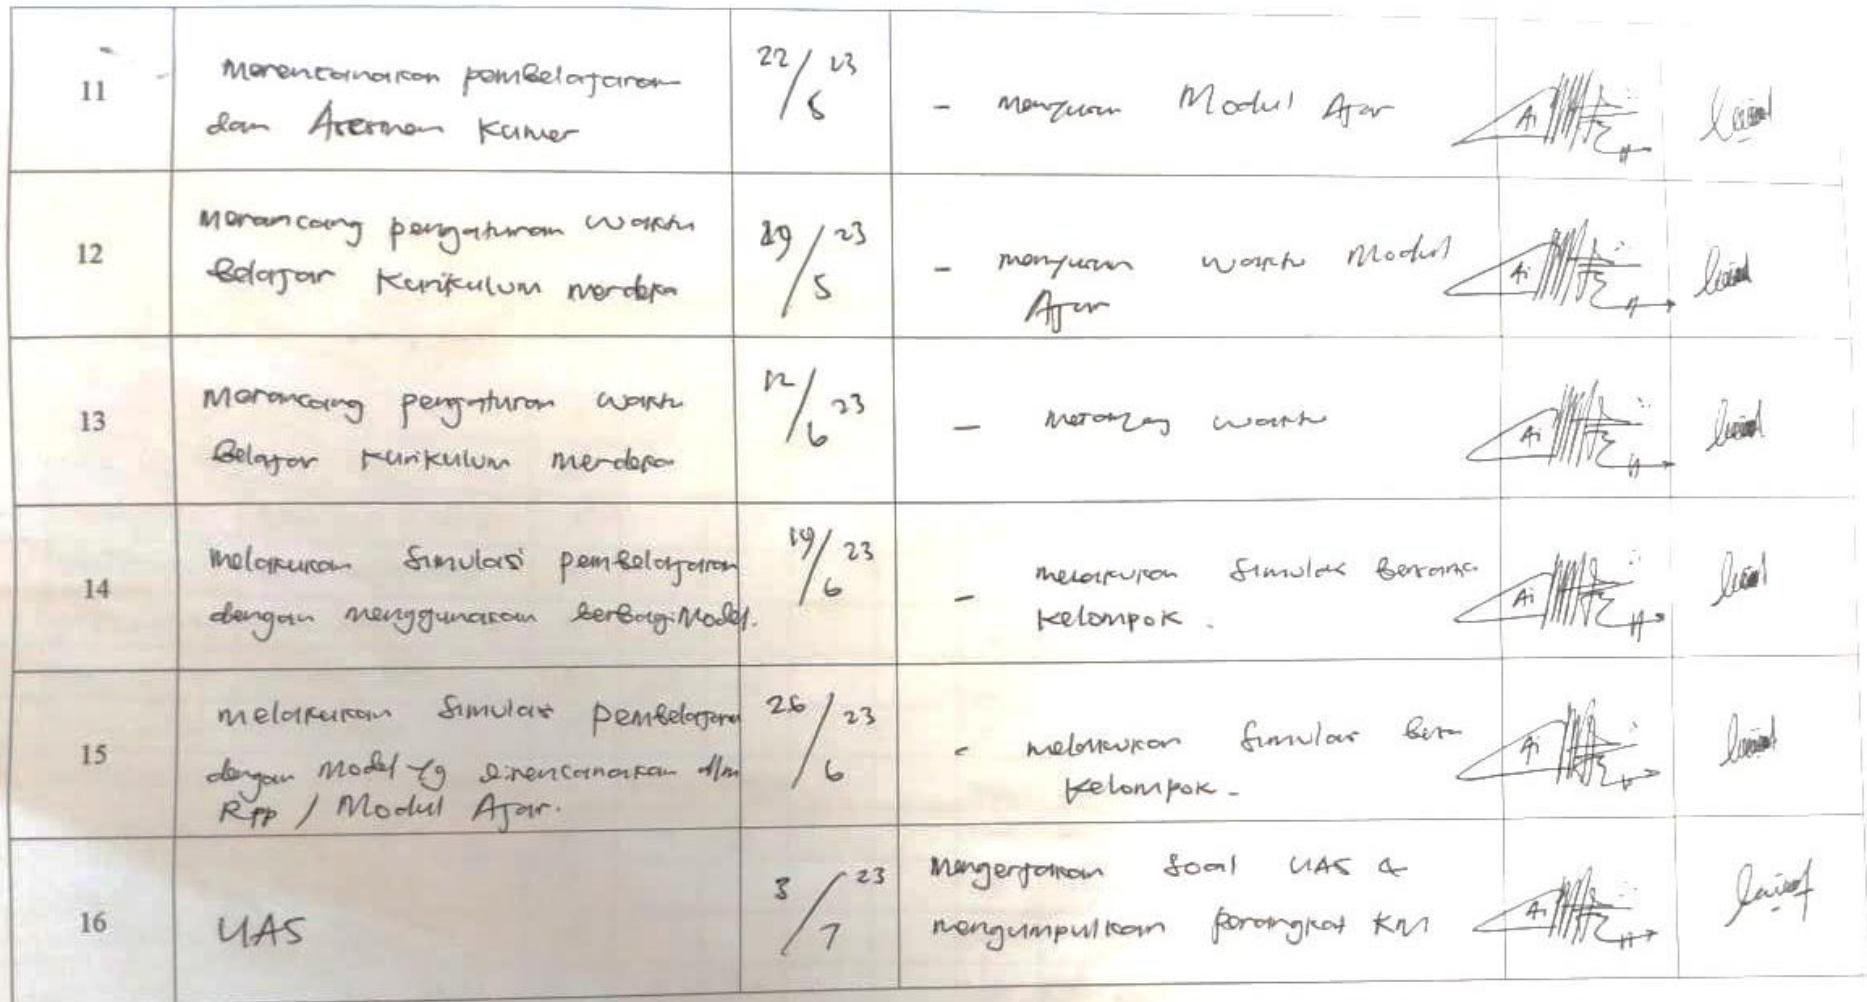 11
Merencanakan pembelajaran
dan Asesmen Kumer
22/5 23
- Menyusun Modul Ajar
Ai
12
Merancang pengaturan waktu
Belajar Kurikulum merdeka
29/5 23
- menyusun waktu Modul
Ajar
Ai
13
Merancang pengaturan waktu
Belajar Kurikulum merdeka
12/6 23
- merancang waktu
Ai
14
melakukan Simulasi pembelajaran
dengan menggunakan berbagi Model.
19/6 23
- melakukan Simulasi bersama
Kelompok.
Ai
15
melakukan Simulasi pembelajaran
dengan Model yg direncanakan dlm
RPP / Modul Ajar.
26/6 23
- melakukan Simulasi
Kelompok.
Ai
16
UAS
3/7 23
Mengerjakan Soal UAS &
mengumpulkan perangkat KM
Ai